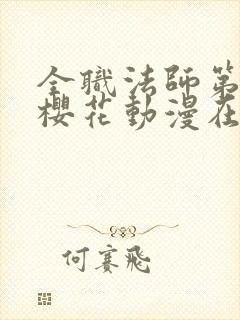 全職法師第
櫻花動漫在
何賽飛